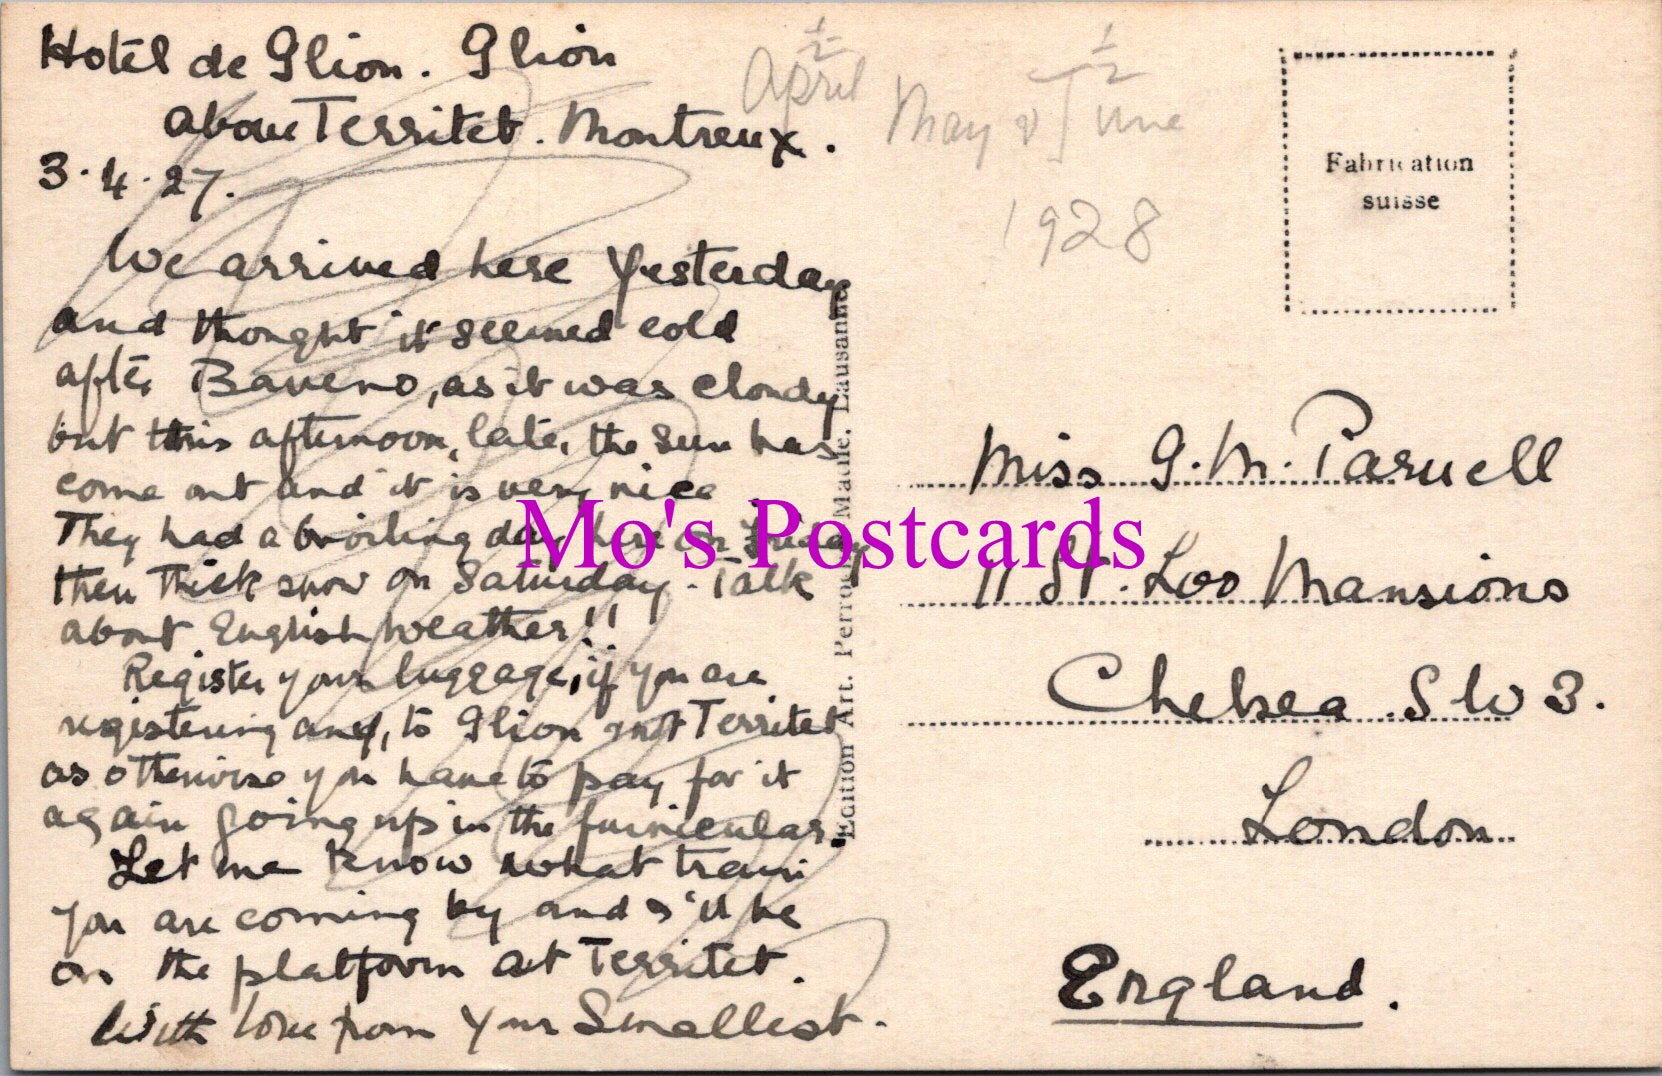 Hotel de Glion. Glion
above Territet. Montreux.
3.4.27.
We arrived here yesterday
and thought it seemed cold
after Baveno, as it was cloudy
but this afternoon, late, the sun has
come out and it is very nice
They had a broiling day here on Friday
then thick snow on Saturday - Talk
about English weather!!
Register your luggage, if you are
registering any, to Glion not Territet
as otherwise you have to pay for it
again going up in the funicular.
Let me know what train
you are coming by and I'll be
on the platform at Territet.
With love from Your Smallest.
½ ½
April May & June
1928
Fabrication
suisse
Edition Art. Perrochet Matile, Lausanne
Miss G. M. Parnell
11 St. Loo Mansions
Chelsea. S W 3.
London
England.
Mo's Postcards